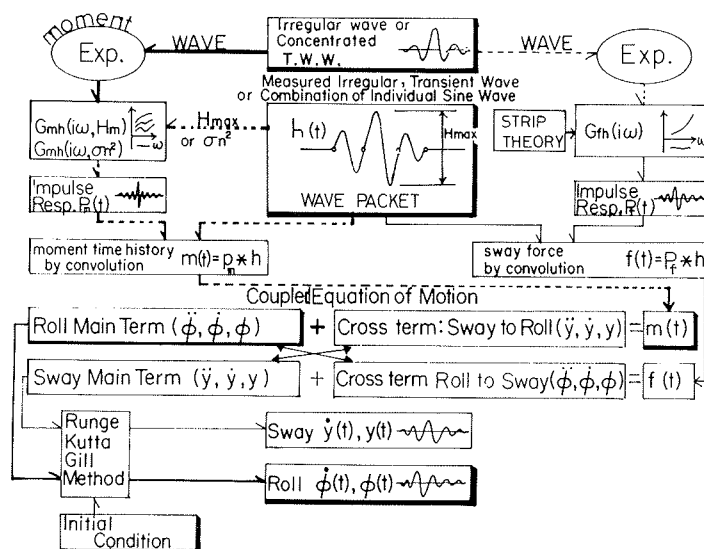 moment
Exp.
WAVE
Irregular wave or
Concentrated
T.W.W.
WAVE
Exp.
Measured Irregular, Transient Wave
or Combination of Individual Sine Wave
Gmh(iω, Hm)
Gmh(iω, ση²)
ω
Hmax
or ση²
h(t)
Hmax
WAVE PACKET
STRIP
THEORY
Gfh(iω)
ω
Impulse
Resp. Pm(t)
Impulse
Resp. Pf(t)
moment time history
by convolution m(t)=pm*h
sway force
by convolution f(t)=Pf*h
Couplet Equation of Motion
Roll Main Term (φ̈, φ̇, φ) + Cross term: Sway to Roll (ÿ, ẏ, y) = m(t)
Sway Main Term (ÿ, ẏ, y) + Cross term Roll to Sway (φ̈, φ̇, φ) = f(t)
Runge
Kutta
Gill
Method
Sway ẏ(t), y(t)
Roll φ̇(t), φ(t)
Initial
Condition